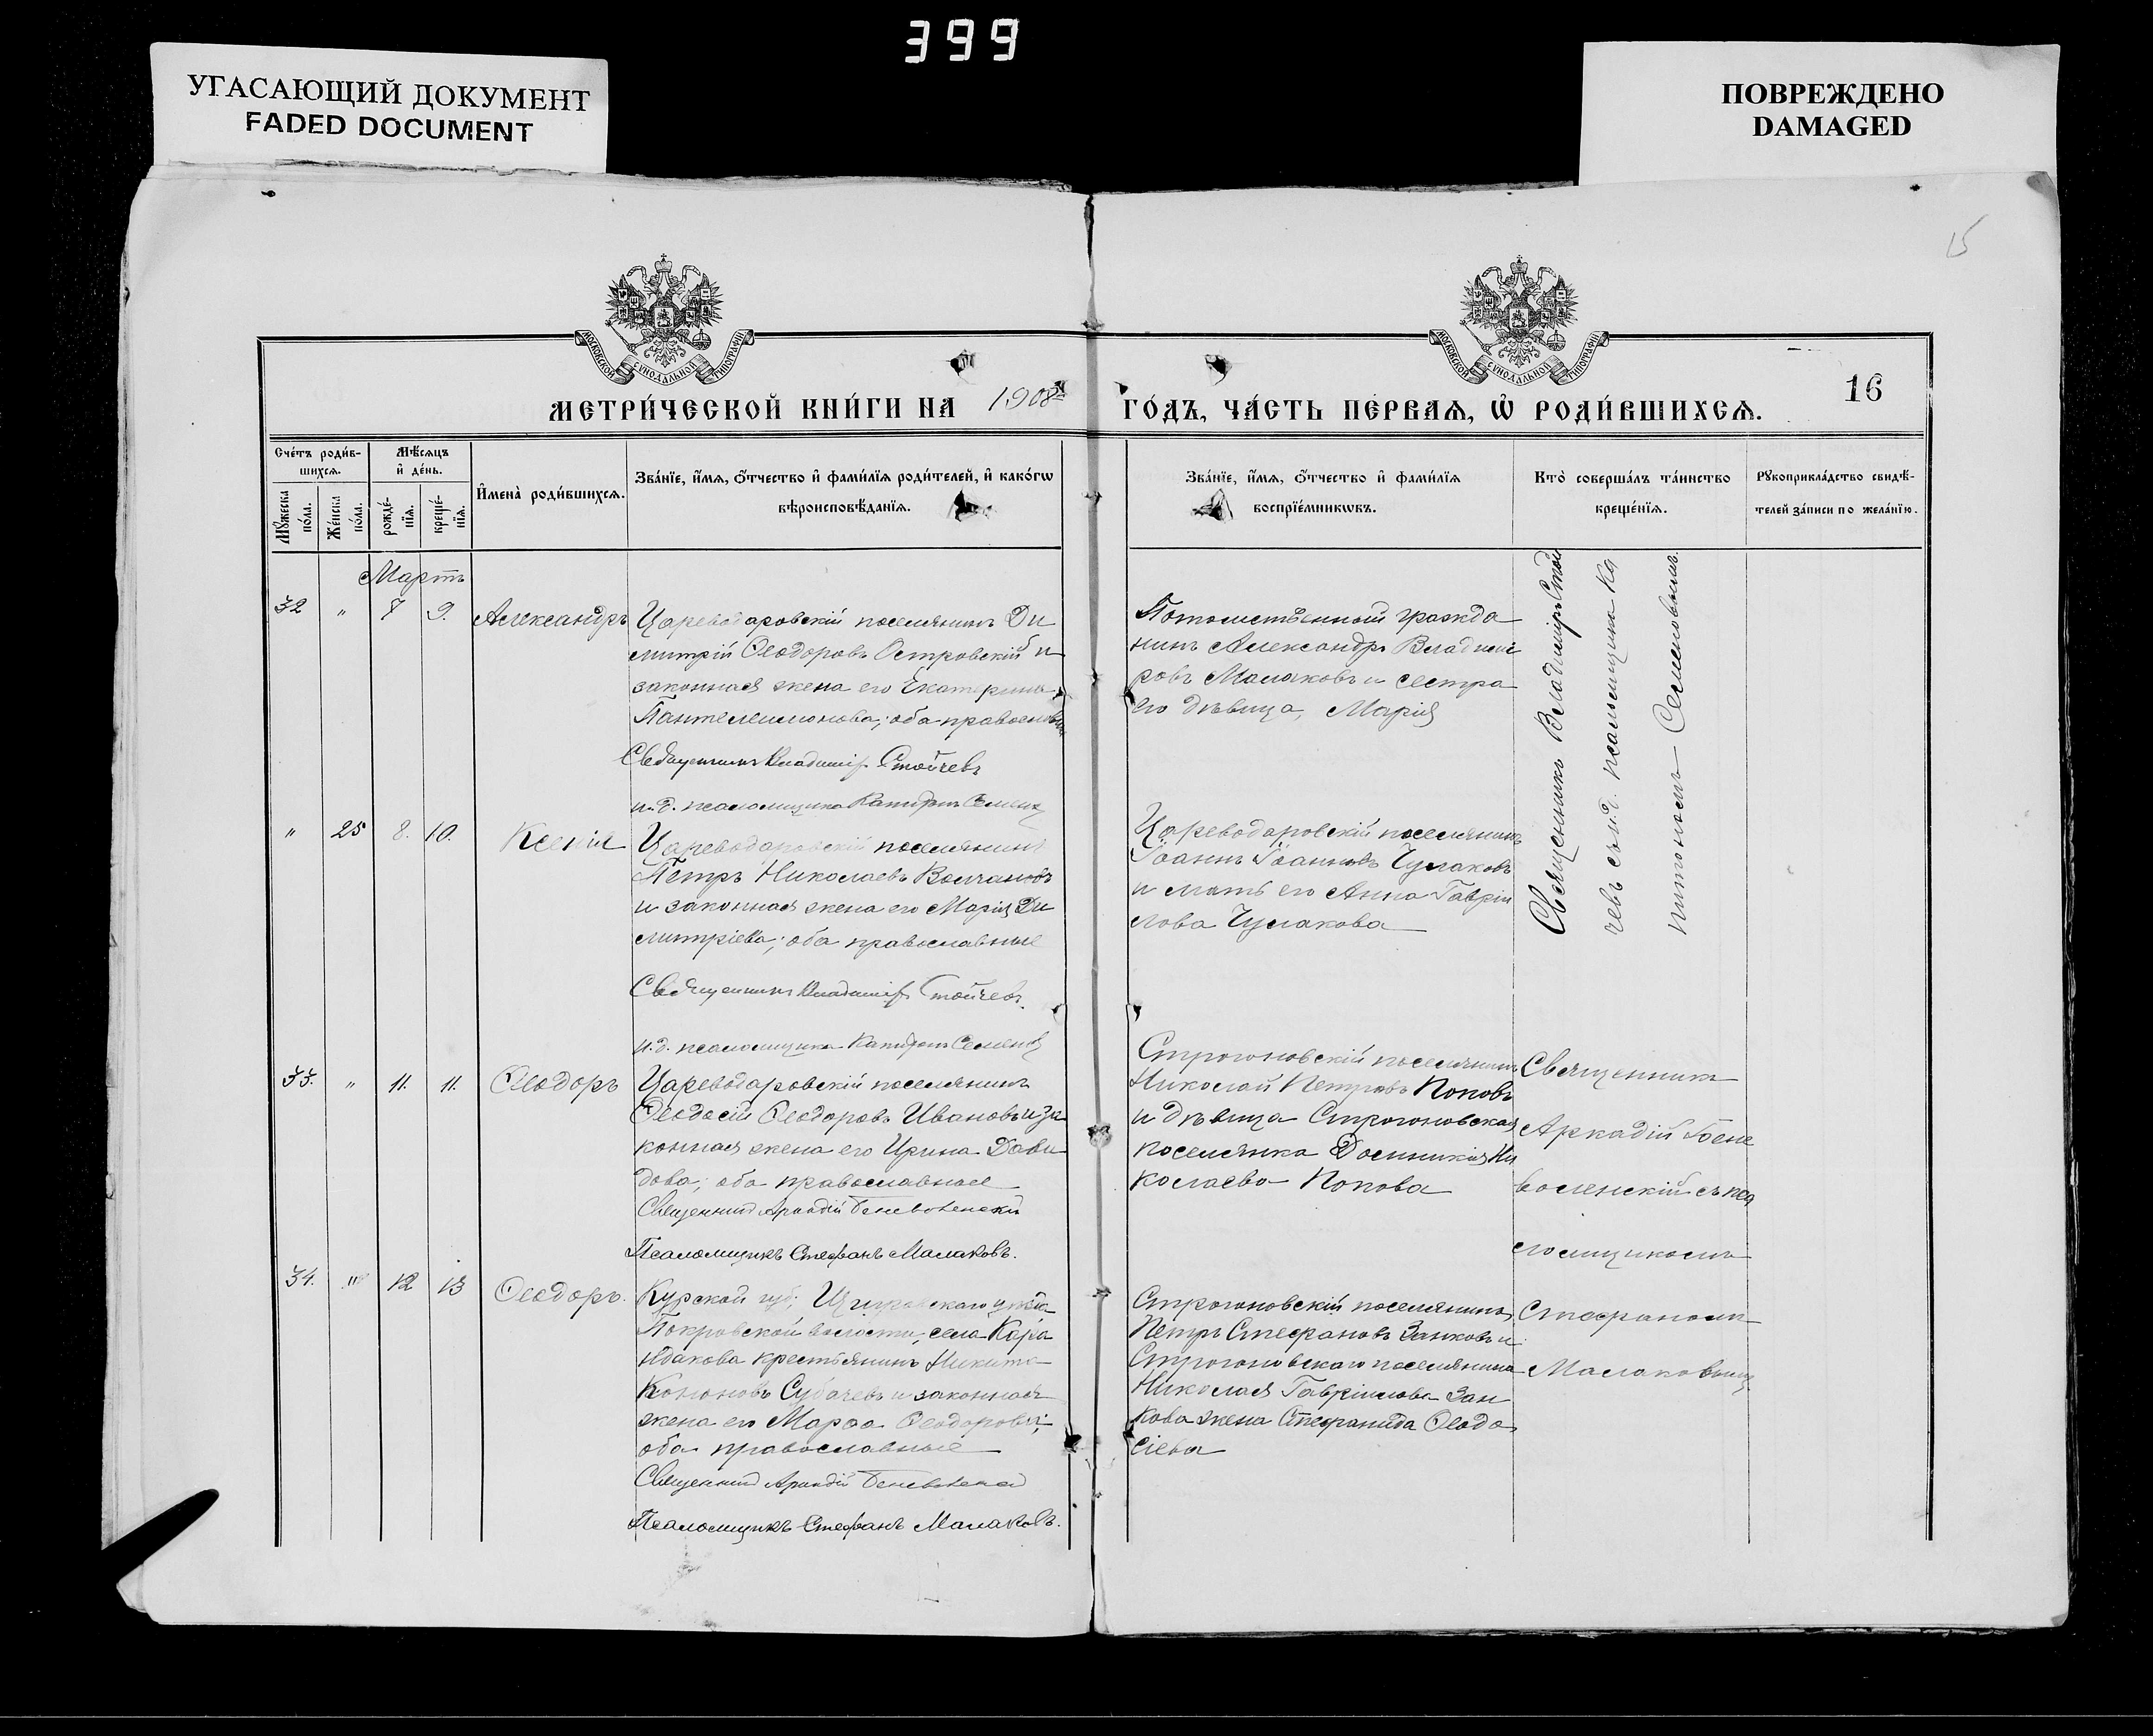 399
УГАСАЮЩИЙ ДОКУМЕНТ
FADED DOCUMENT
ПОВРЕЖДЕНО
DAMAGED
15
МОСКОВСКОЙ СУНОДАЛЬНОЙ ТИПОГРАФІИ
МОСКОВСКОЙ СУНОДАЛЬНОЙ ТИПОГРАФІИ
МЕТРИ́ЧЕСКОЙ КНИ́ГИ НА 1908 ГО́ДЪ, ЧА́СТЬ ПЕ́РВАЯ, Ѡ҆ РОДИ́ВШИХСЯ.
16
Сче́тъ роди́в-
шихсѧ.
Мꙋжеска по́ла.
Же́нска по́ла.
Мѣ́сѧцъ
и҆ де́нь.
рожде́-
нїѧ.
креще́-
нїѧ.
И҆мена̀ роди́вшихсѧ.
Зва́нїе, и҆́мѧ, ѻ҆́тчество и҆ фами́лїѧ роди́телей, и҆ како́гѡ
вѣроисповѣ́данїѧ.
Зва́нїе, и҆́мѧ, ѻ҆́тчество и҆ фами́лїѧ
воспрїе́мникѡвъ.
Кто̀ соверша́лъ та́инство
креще́нїѧ.
Рꙋкоприкла́дство свидѣ́-
телей за́писи по жела́нїю.
Мартъ
32 " 7 9. Александръ
Цареводаровскій поселянинъ Ди
митрій Ѳеодоровъ Островскій и
законная жена его Екатерина
Пантелеимонова; оба православные
Священникъ Владиміръ Стойчевъ
и. д. псаломщика Капитонъ Семеновъ
Потомственный гражда
нинъ Александръ Владими
ровъ Малаковъ и сестра
его дѣвица, Марія
Священникъ Владиміръ Стой
чевъ съ и.д. псаломщика Ка
питономъ Семеновымъ.
" 25 8. 10. Ксенія
Цареводаровскій поселянинъ
Петръ Николаевъ Волчановъ
и законная жена его Марія Ди
митріева; оба православные
Священникъ Владиміръ Стойчевъ
и. д. псаломщика Капитонъ Семеновъ
Цареводаровскій поселянинъ
Іоаннъ Іоанновъ Чулаковъ
и мать его Анна Гаврии
лова Чулакова
33. " 11. 11. Ѳеодоръ
Цареводаровскій поселянинъ
Ѳеодосій Ѳеодоровъ Ивановъ и за
конная жена его Ирина Дави
дова; оба православные
Священникъ Аркадій Беневоленскій
Псаломщикъ Стефанъ Малаковъ.
Строгоновскій поселянинъ
Николай Петровъ Поповъ
и дѣвица Строгоновская
поселянка Домникія Ни
колаева Попова
Священникъ
Аркадій Бене
воленскій съ пса
ломщикомъ
Стефаномъ
Малаковымъ
34. " 12 13 Ѳеодоръ.
Курской губ; Щигровскаго уѣзда
Покровской волости, села Кара
ндакова крестьянинъ Никита
Кононовъ Субачевъ и законная
жена его Марѳа Ѳеодорова;
оба православные
Священникъ Аркадій Беневоленскій
Псаломщикъ Стефанъ Малаковъ.
Строгоновскій поселянинъ
Петръ Стефановъ Занковъ и
Строгоновскаго поселянина
Николая Гавріилова Зан
кова жена Стефанида Ѳеодо
сіева